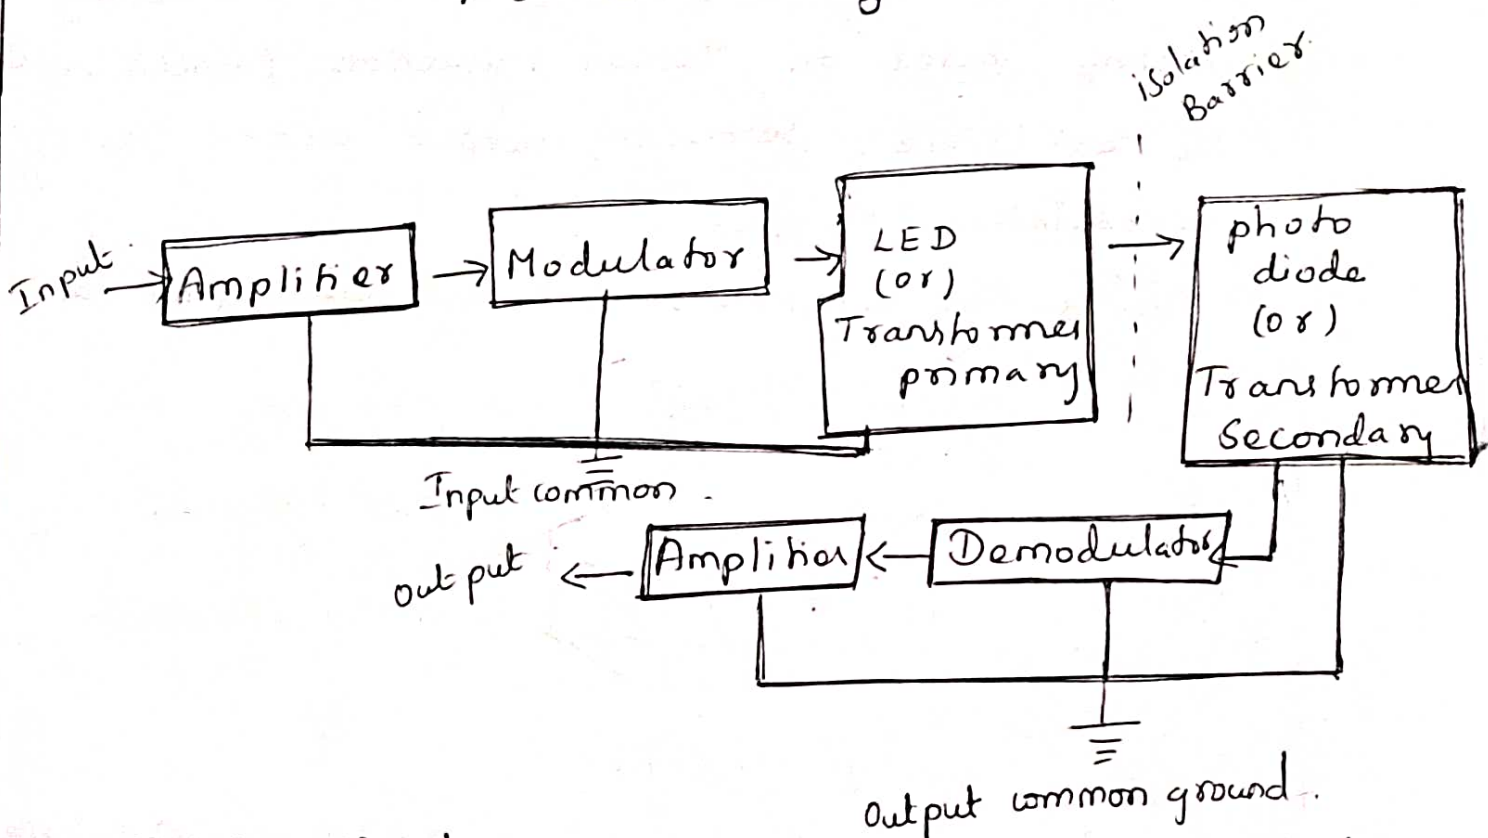 isolation
Barrier
Input
Amplifier
Modulator
LED
(or)
Transformer
primary
photo
diode
(or)
Transformer
Secondary
Input common.
Output
Amplifier
Demodulator
Output common ground.